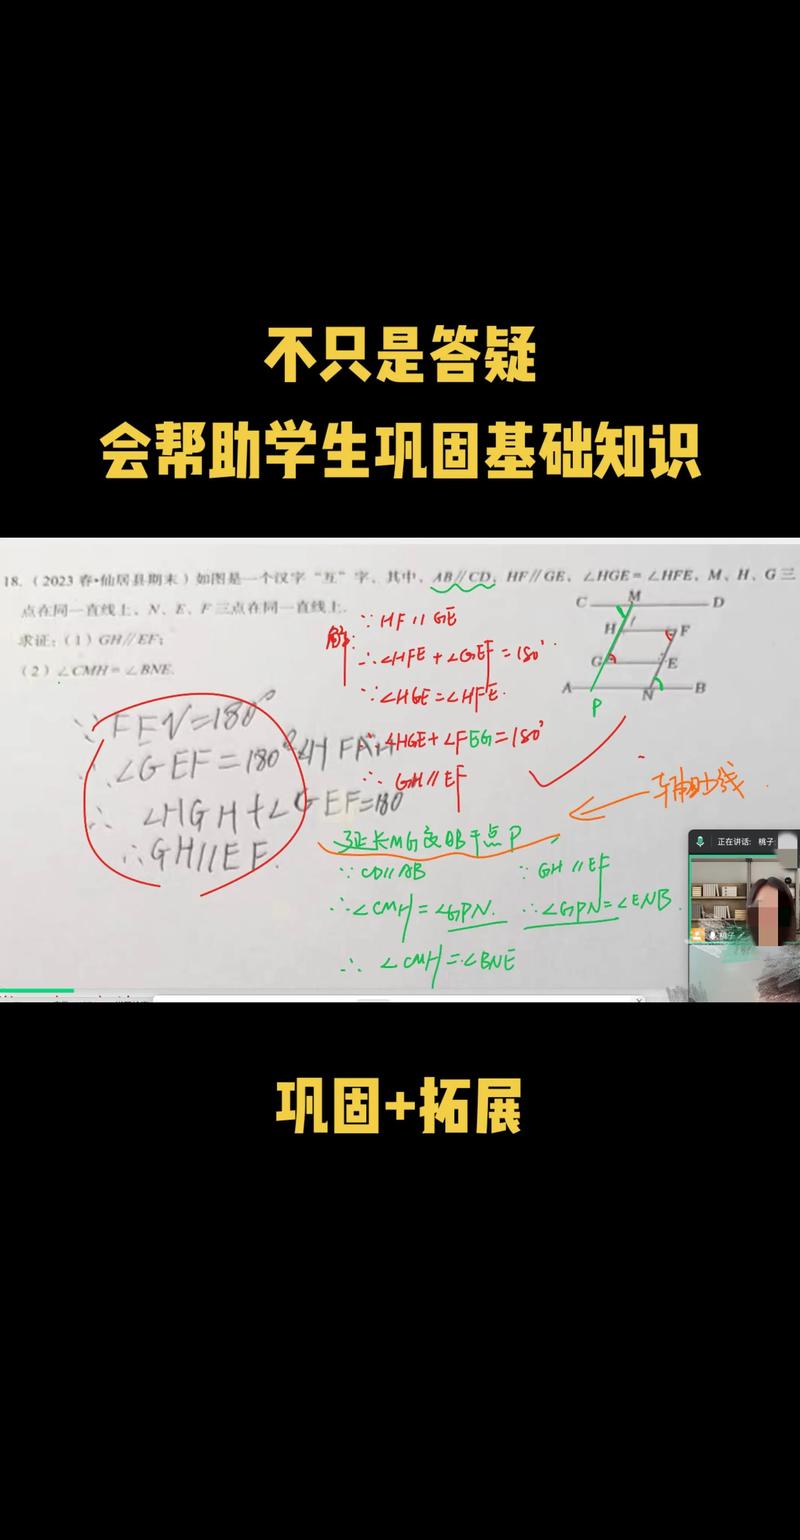 不只是答疑
会帮助学生巩固基础知识
18.（2023 春•仙居县期末）如图是一个汉字“互”字，其中，AB∥CD，HF∥GE，∠HGE=∠HFE，M、H、G三
点在同一直线上，N、E、F三点在同一直线上.
求证：（1）GH∥EF；
（2）∠CMH=∠BNE.
C M D
H F
G E
A N B
P
解：
∵HF∥GE
∴∠HFE+∠GEF=180°
∵∠HGE=∠HFE.
∴∠HGE+∠FEG=180°
∴GH∥EF
∵FEN=180°
∠GEF=180°
∴∠HGH+∠GEF=180
∴GH∥EF.
辅助线
延长MG交AB于点P
∵CD∥AB
∴∠CMH=∠GPN.
∵GH∥EF
∴∠GPN=∠ENB.
∴∠CMH=∠BNE
正在讲话: 桃子
桃子
巩固+拓展